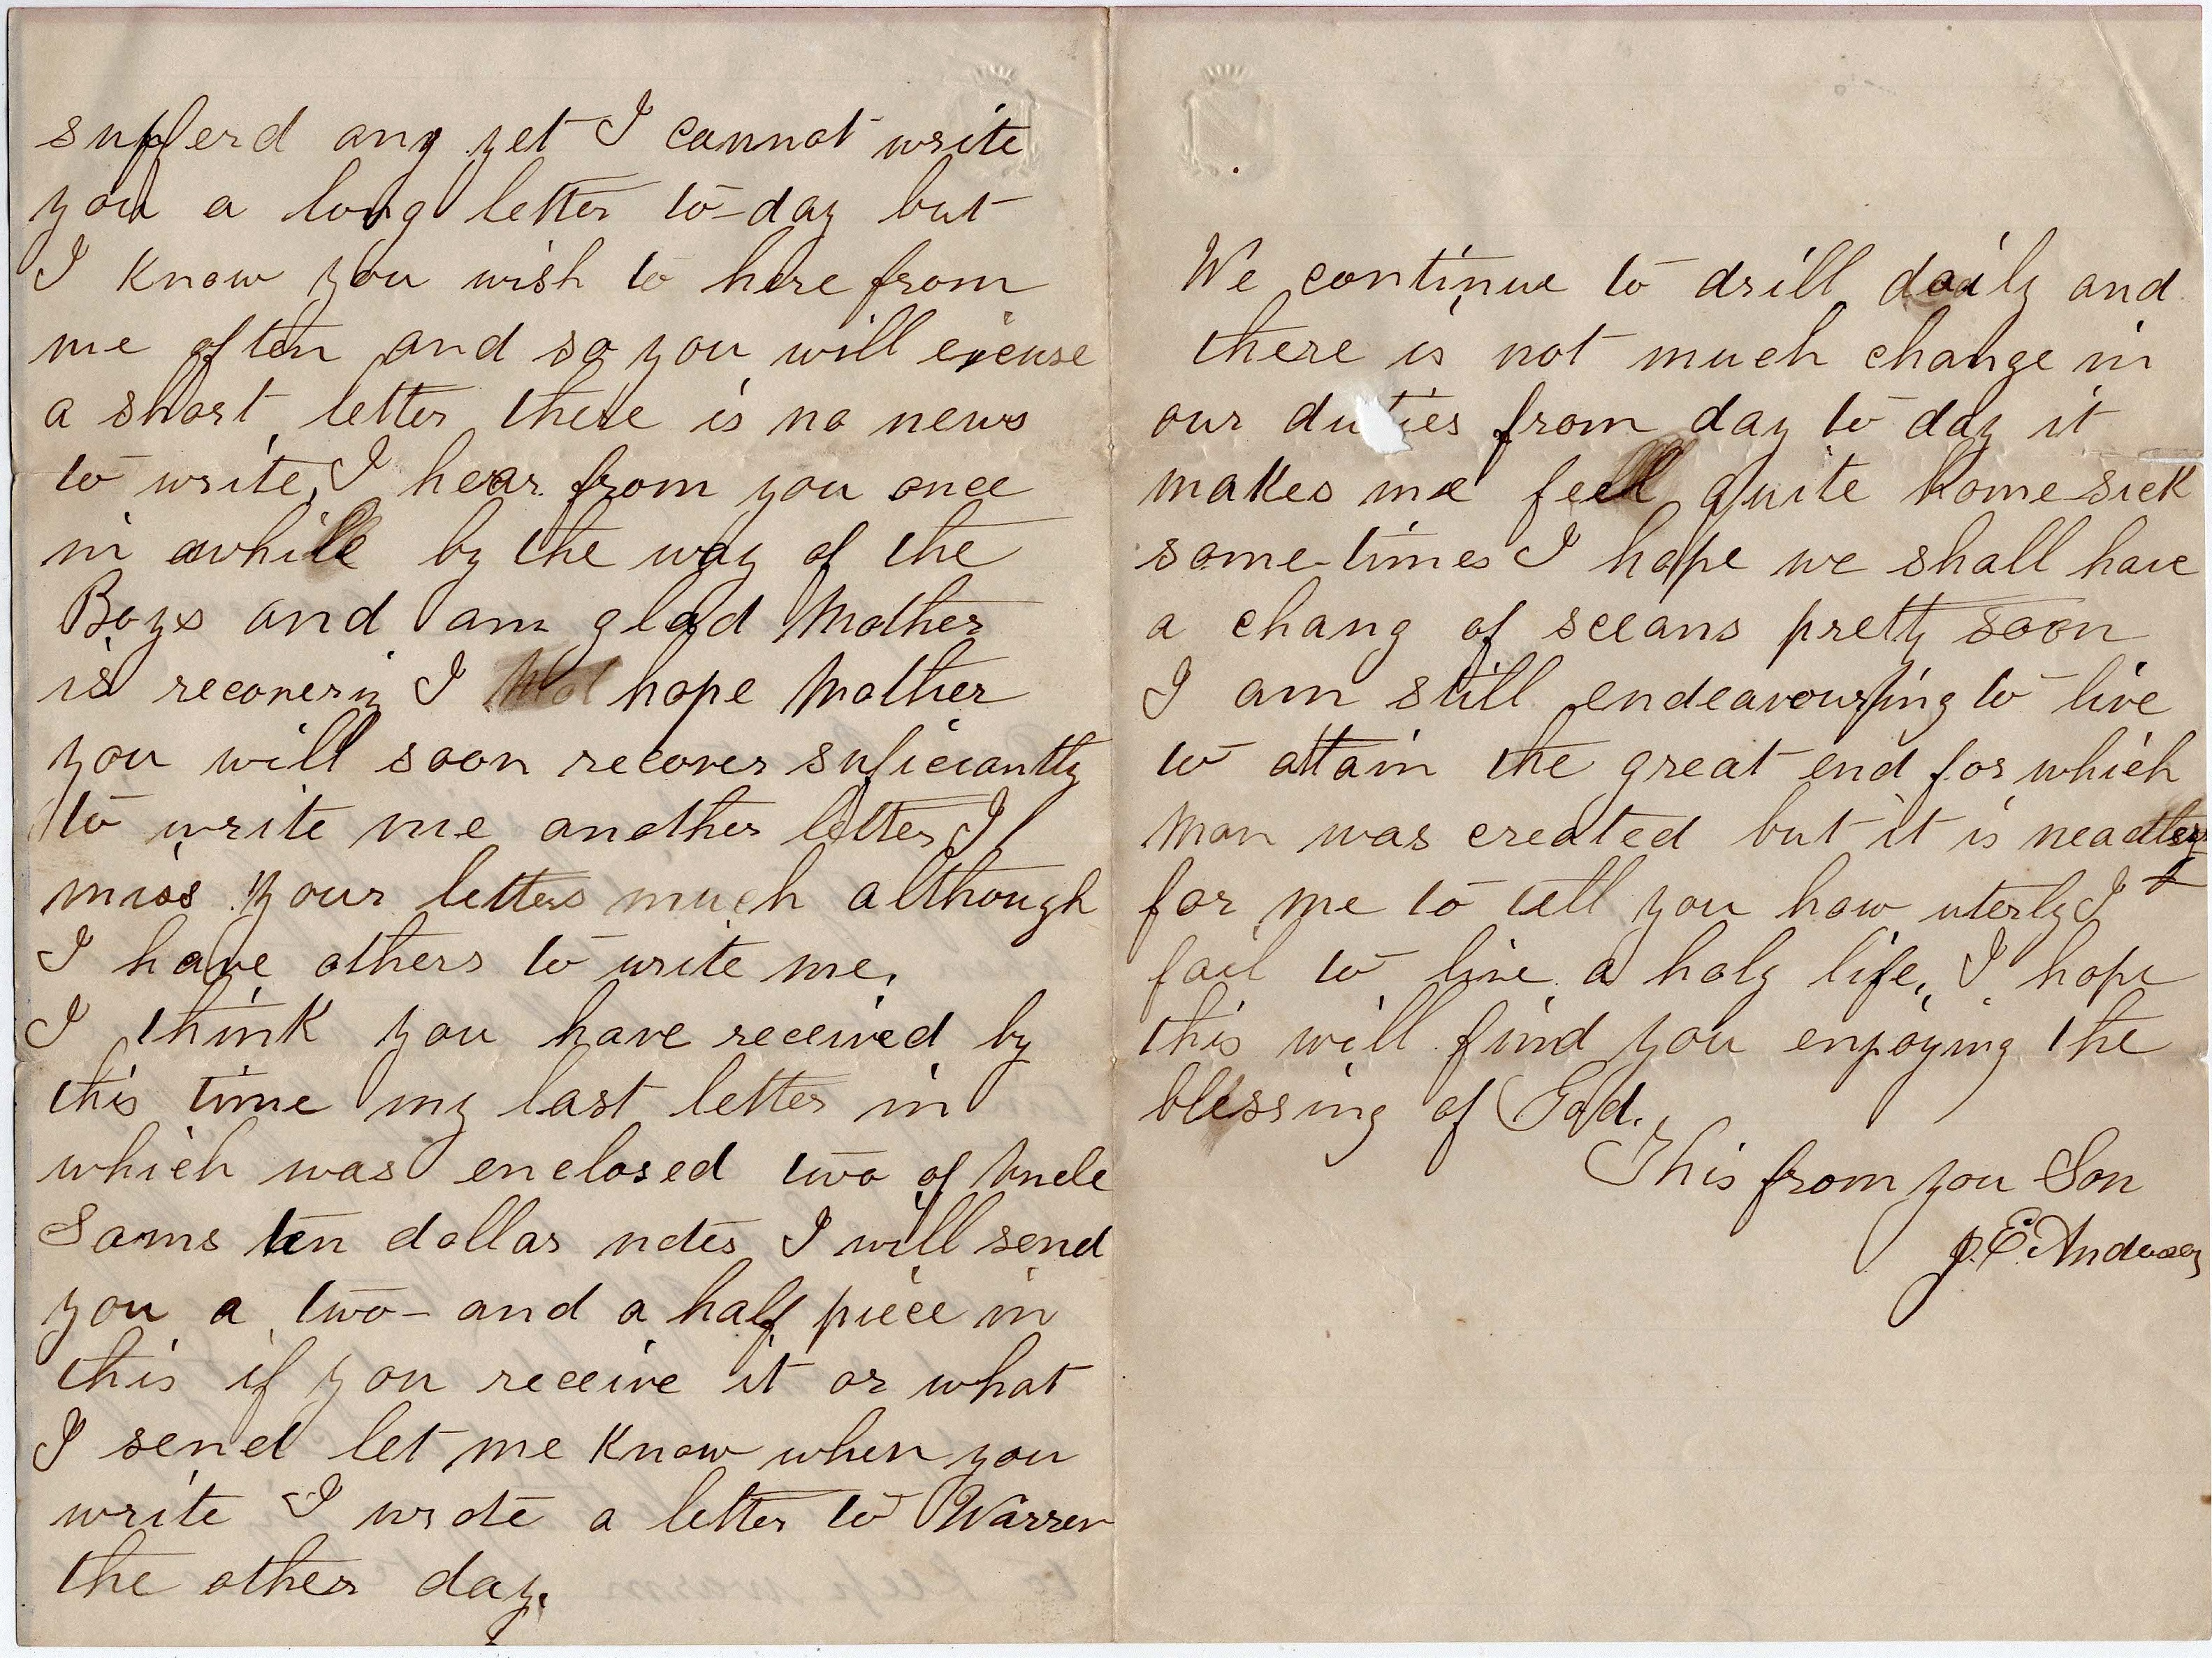 sufferd any yet I cannot write
you a long letter to-day but
I know you wish to here from
me often and so you will excuse
a short letter there is no news
to write, I hear from you once
in awhile by the way of the
Boys and am glad Mother
is recoverin I hope Mother
you will soon recover suficiantly
to write me another letter I
miss your letters much although
I have others to write me,
I think you have received by
this time my last letter in
which was enclosed two of Uncle
Sams ten dollar notes I will send
you a two- and a half piece in
this if you receive it or what
I send let me know when you
write I wrote a letter to Warren
the other day.
We continue to drill daily and
there is not much change in
our duties from day to day it
makes me feel quite home-sick
some-times I hope we shall have
a chang of sceans pretty soon
I am still endeavouring to live
to attain the great end for which
man was created but it is
for me to tell you how uterly I
fail to live a holy life, I hope
this will find you enjoying the
blessing of God.
This from you Son
J. E. Anderson